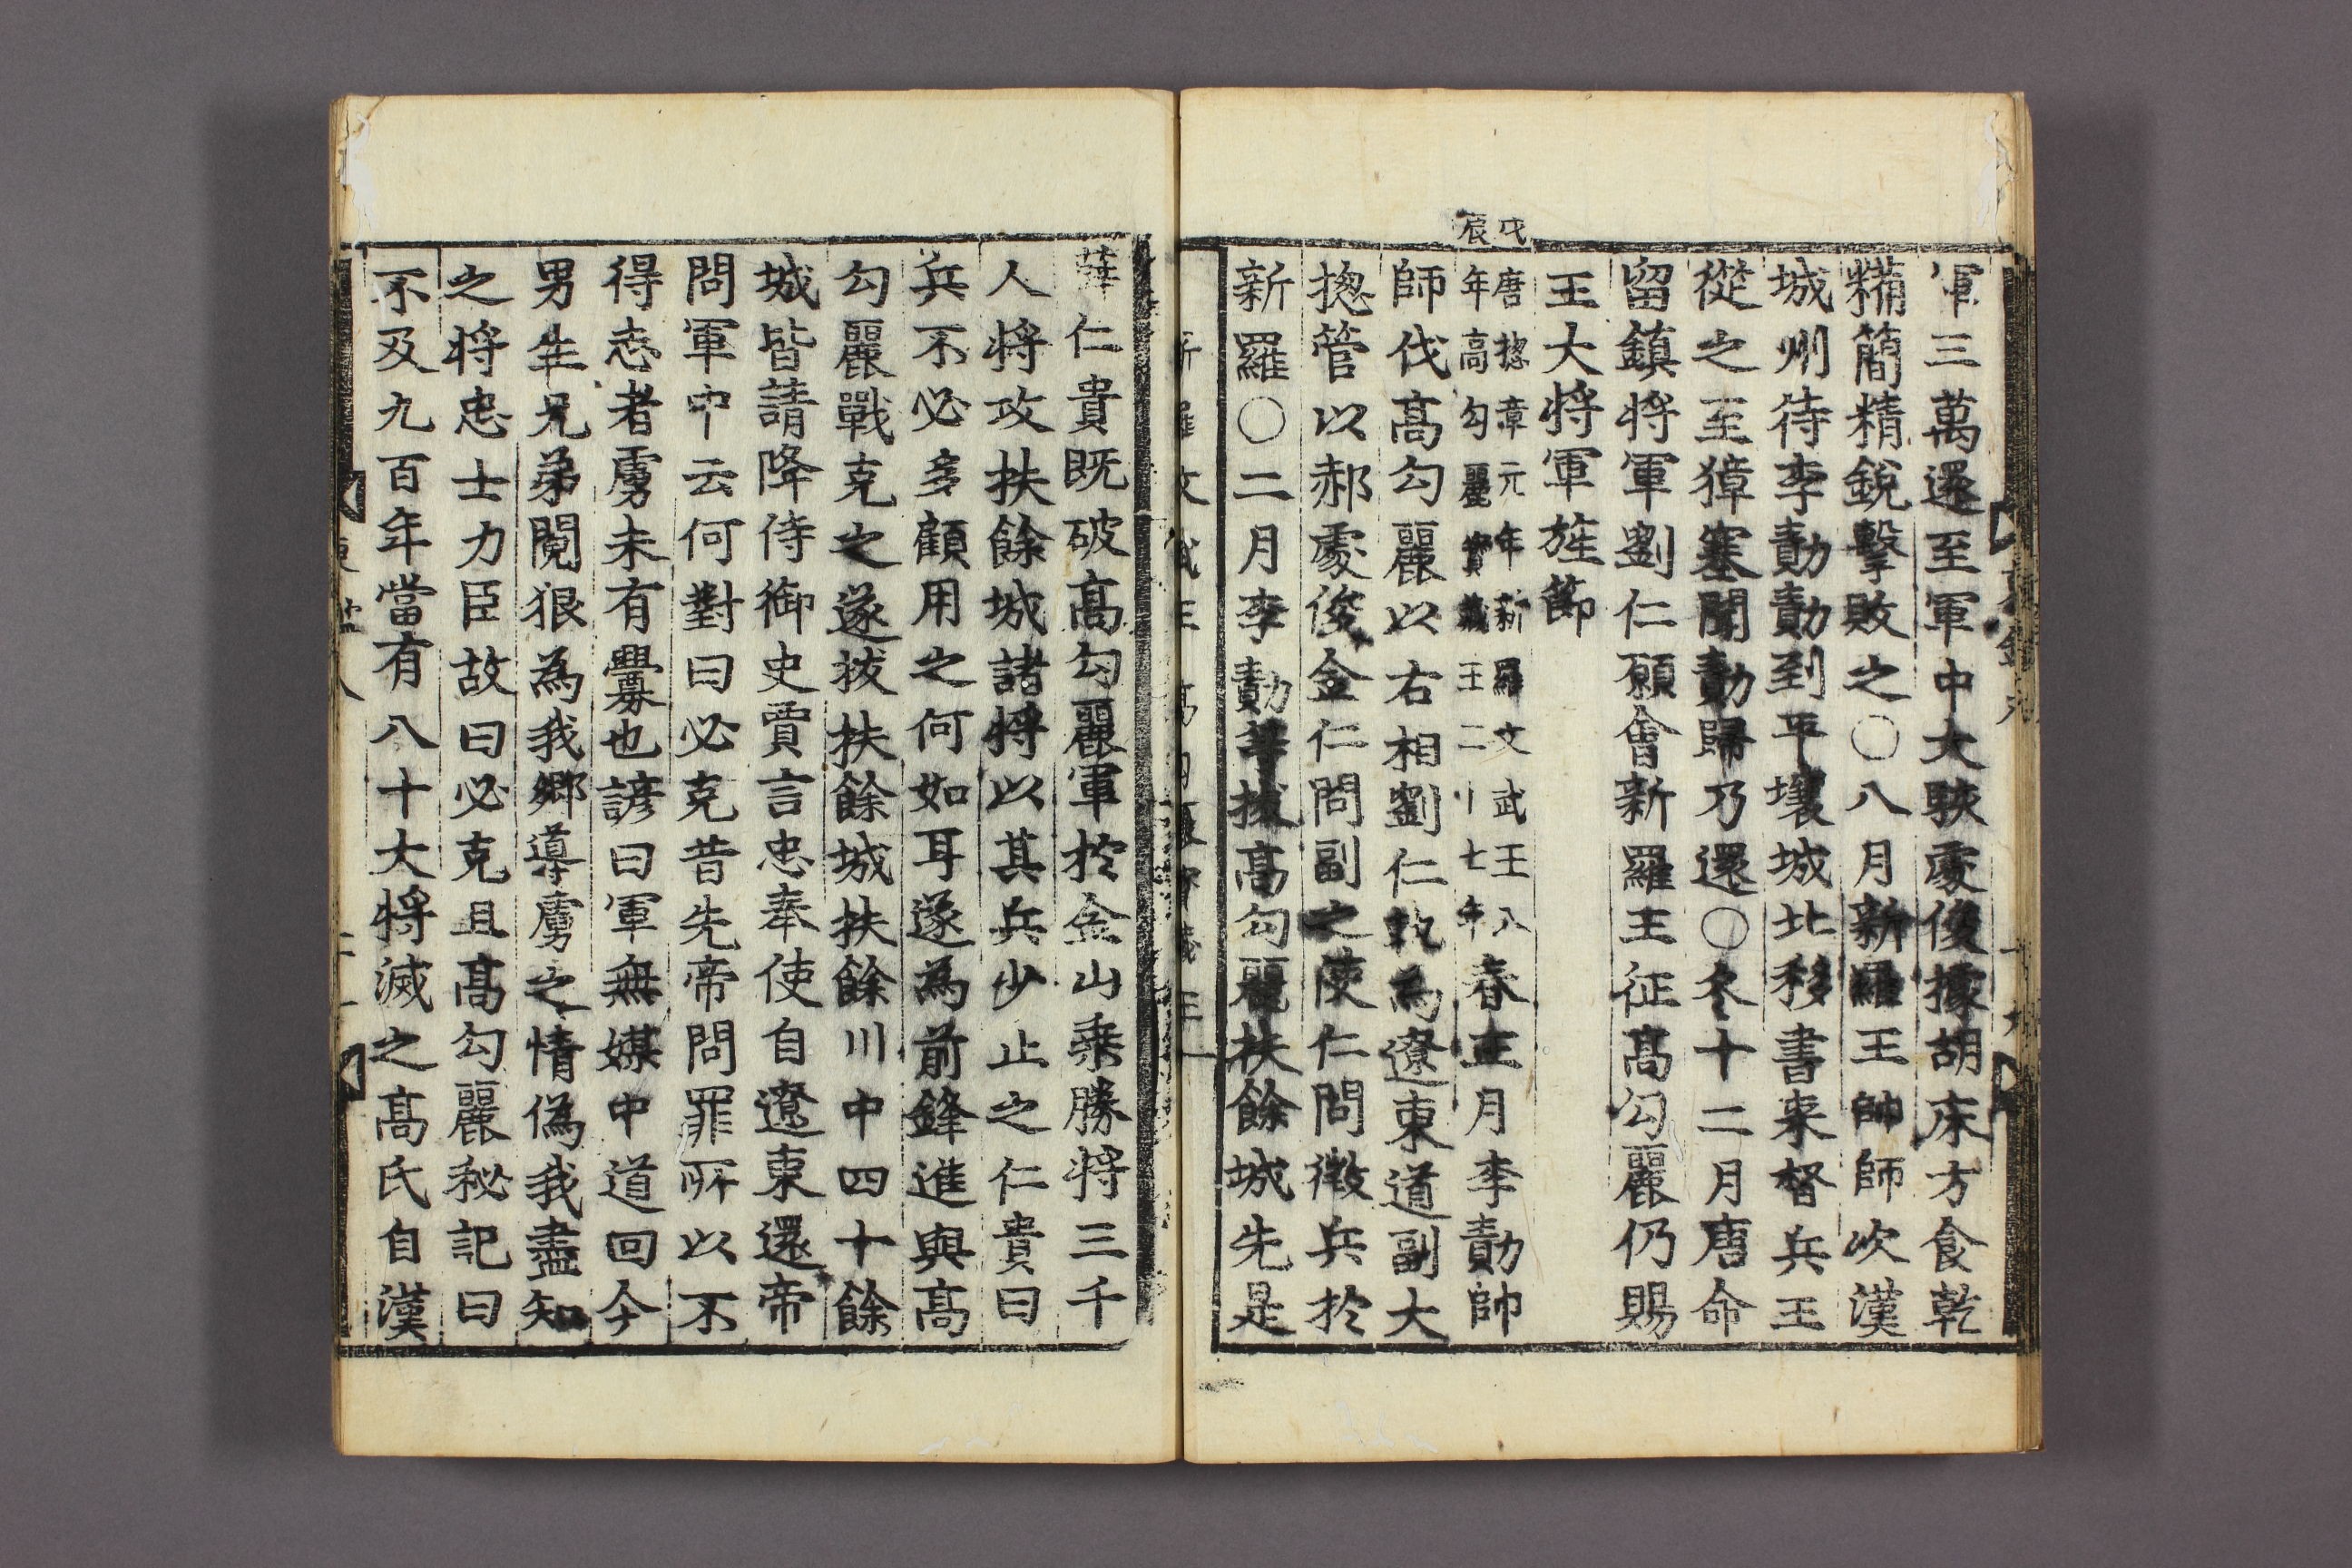 軍三萬還至軍中大駭處俊據胡床方食乾
糒簡精銳擊敗之○八月新羅王帥師次漢
城州待李勣勣到平壤城北移書来督兵王
從之至獐塞聞勣歸乃還○冬十二月唐命
留鎮将軍劉仁願會新羅王征髙勾麗仍賜
王大将軍旌節
戊辰
唐揔章元年新羅文武王八
年高勾麗寶藏王二十七年
春正月李勣帥
師伐髙勾麗以右相劉仁軌為遼東道副大
揔管以郝處俊金仁問副之使仁問徵兵於
新羅○二月李勣等拔髙勾麗扶餘城先是
新羅文武王 髙勾麗寶藏王
薛仁貴既破髙勾麗軍於金山乘勝将三千
人将攻扶餘城諸将以其兵少止之仁貴曰
兵不必多顧用之何如耳遂為前鋒進與髙
勾麗戰克之遂拔扶餘城扶餘川中四十餘
城皆請降侍御史賈言忠奉使自遼東還帝
問軍中云何對曰必克昔先帝問罪所以不
得志者虜未有釁也諺曰軍無媒中道回今
男生兄弟鬩狠為我鄉導虜之情偽我盡知
之将忠士力臣故曰必克且髙勾麗秘記曰
不及九百年當有八十大将滅之髙氏自漢